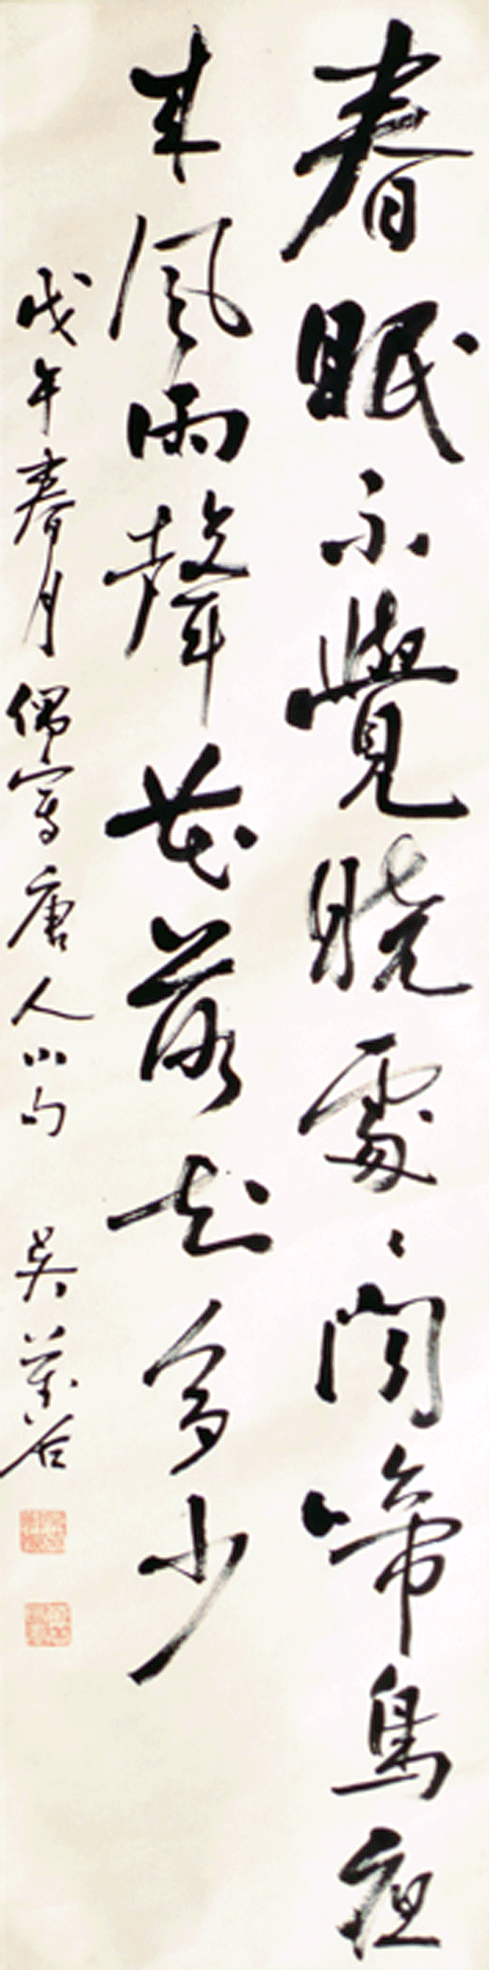 春眠不覺曉處〻聞啼鳥夜
来風雨聲花落知多少
戊午春月偶寫唐人小句 吳萬谷